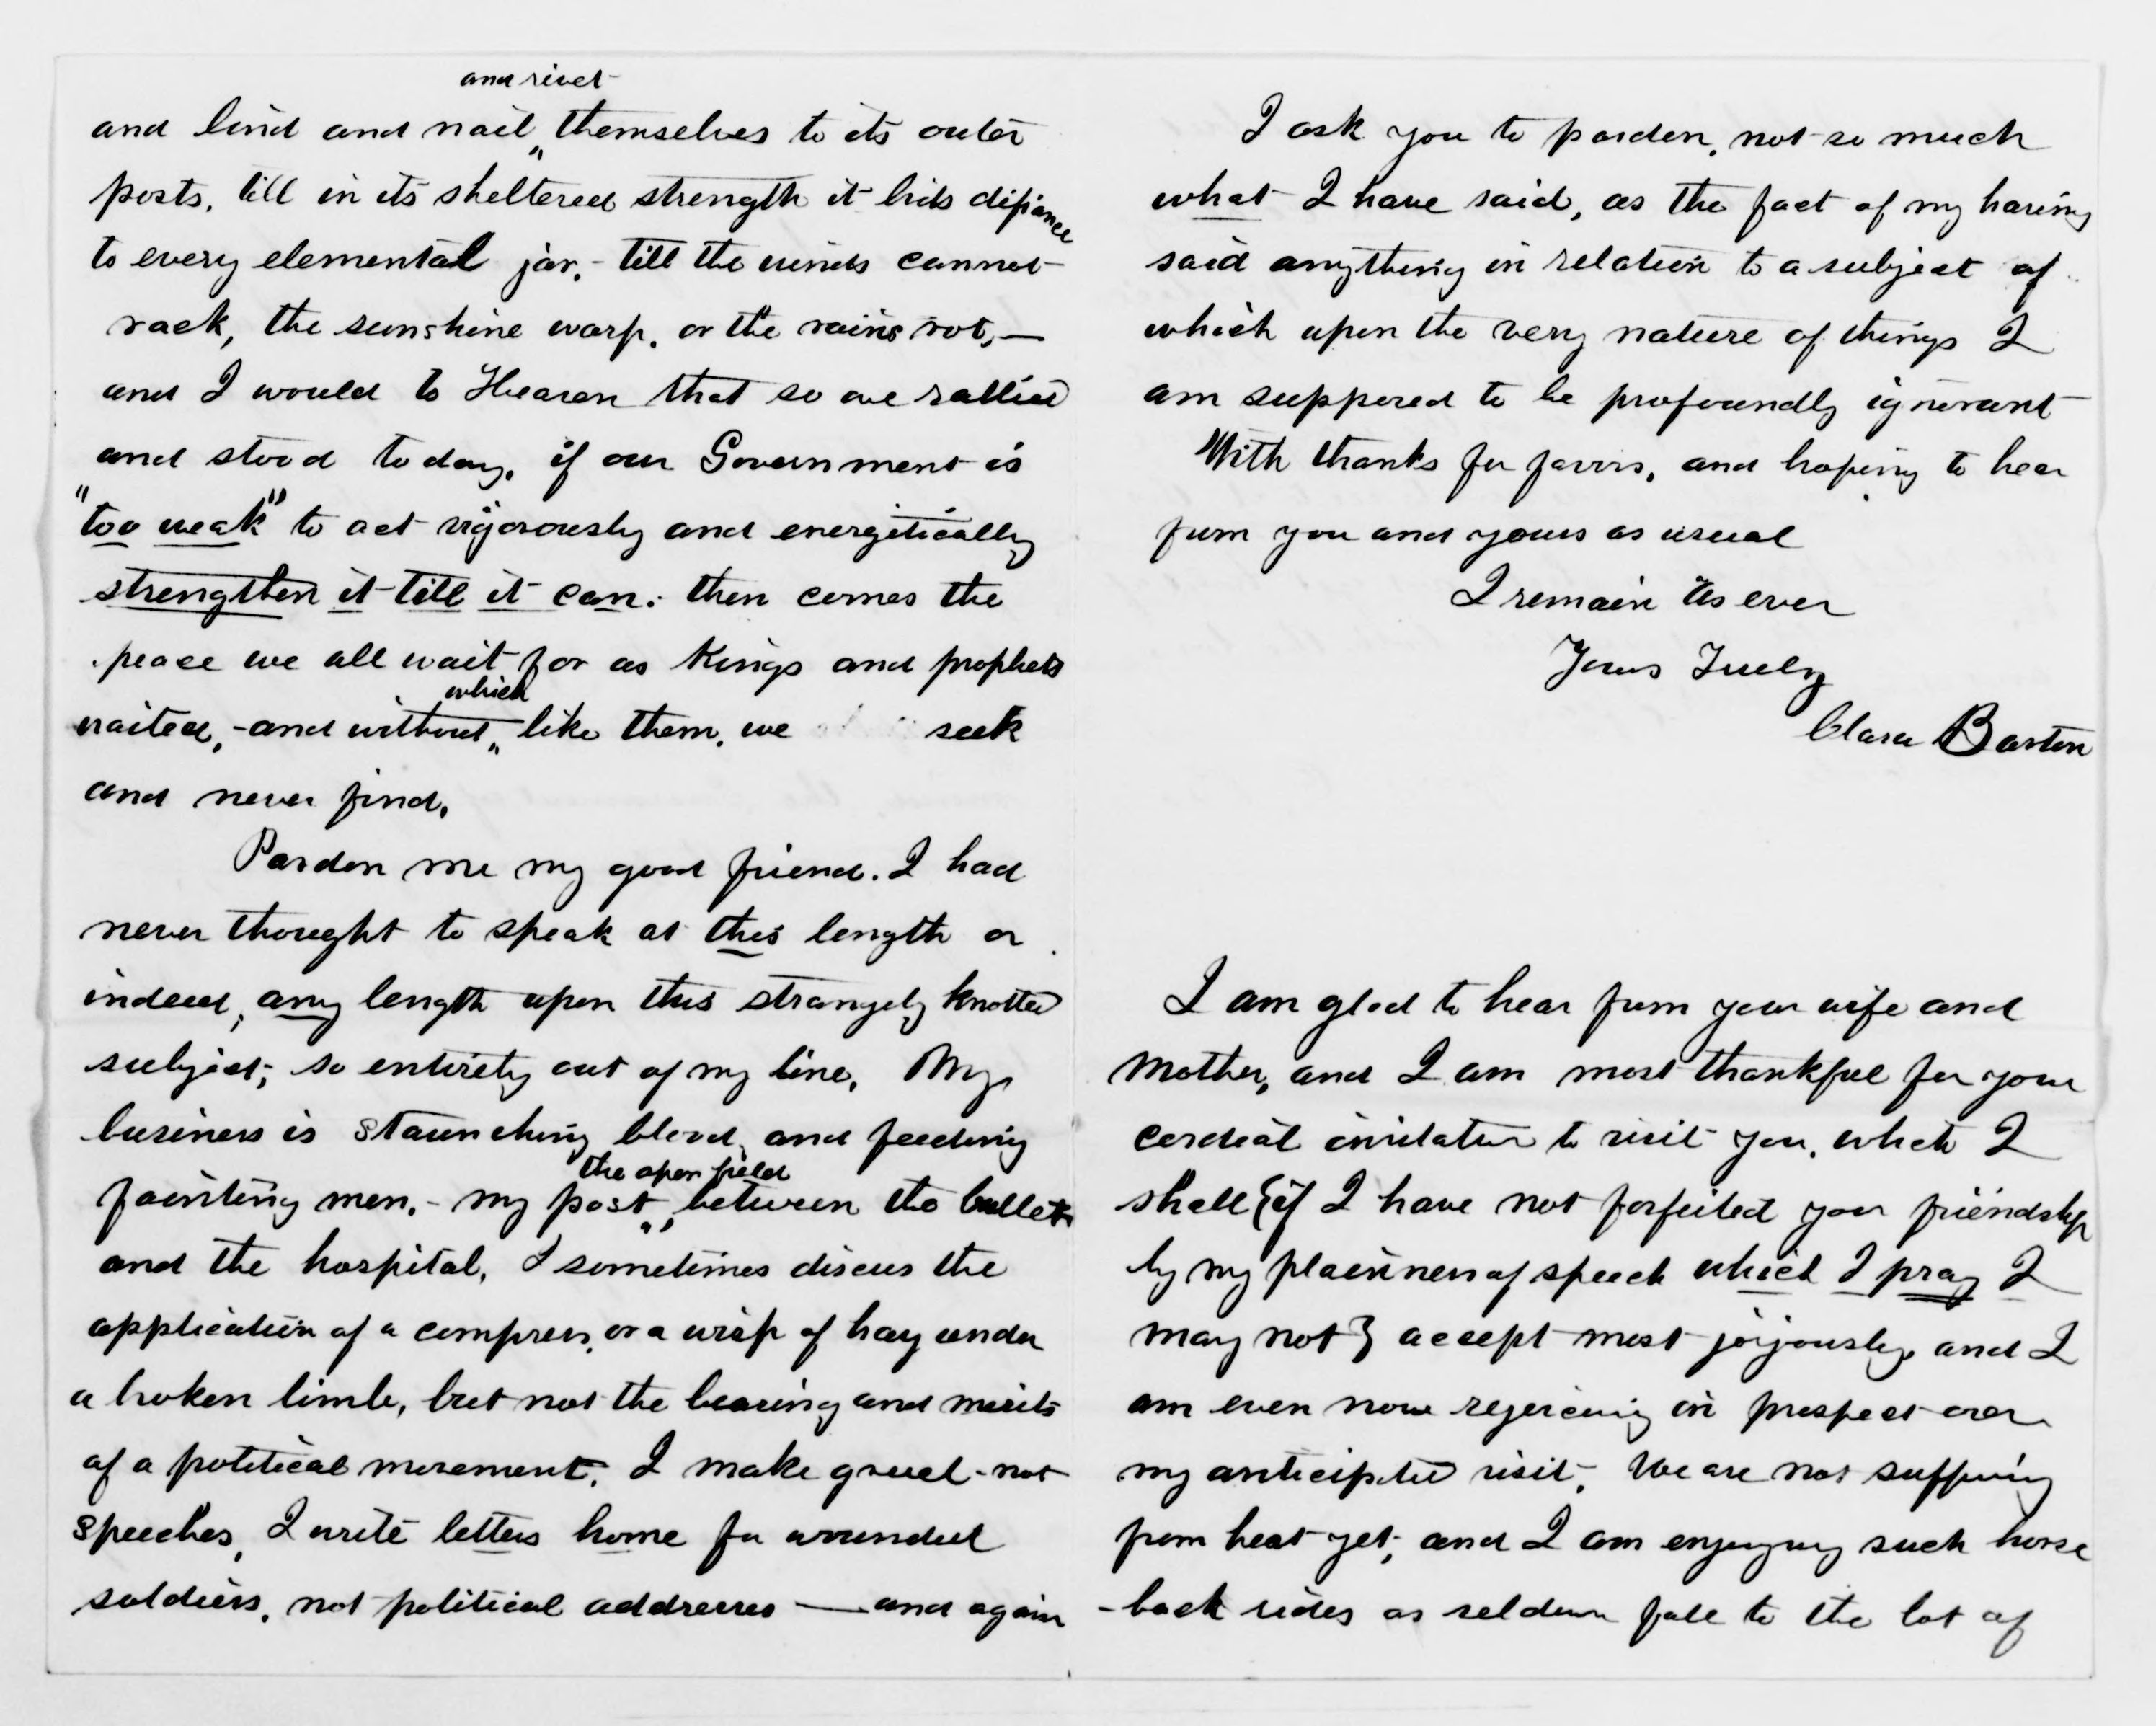 and rivet
and bind and nail " themselves to its outer
posts, till in its sheltered strength it bids difiance
to every elemental jar,- till the winds cannot
rack, the sunshine warp, or the rains rot,—
and I would to Heaven that so we rallied
and stood today, if our Government is
"too weak" to act vigorously and energetically
strengthen it till it can: then comes the
peace we all wait for as Kings and prophets
which
waited,-and without " like them, we seek
and never find.
Pardon me my good friend. I had
never thought to speak at this length or
indeed, any length upon this strangely knotted
subject, so entirely out of my line, My
business is staunching blood, and feeding
the open field
fainting men,- my post ", between the bullet
and the hospital, I sometimes discus the
application of a compress, or a wisp of hay under
a broken limb, but not the bearing and merits
of a political movement. I make gruel-not
speeches, I write letters home for wounded
soldiers, not political addresses — and again
I ask you to pardon, not so much
what I have said, as the fact of my having
said anything in relation to a subject of
which upon the very nature of things I
am supposed to be profoundly ignorant
With thanks for favors, and hoping to hear
from you and yours as usual
I remain as ever
Yours Truly
Clara Barton
I am glad to hear from your wife and
Mother, and I am most thankful for your
cordial invitation to visit you, which I
shall {if I have not forfeited your friendship
by my plainness of speech which I pray I
may not} accept most joyously, and I
am even now rejoicing in prospect over
my anticipated visit, We are not suffering
from heat yet, and I am enjoying such horse
-back rides as seldom fall to the lot of